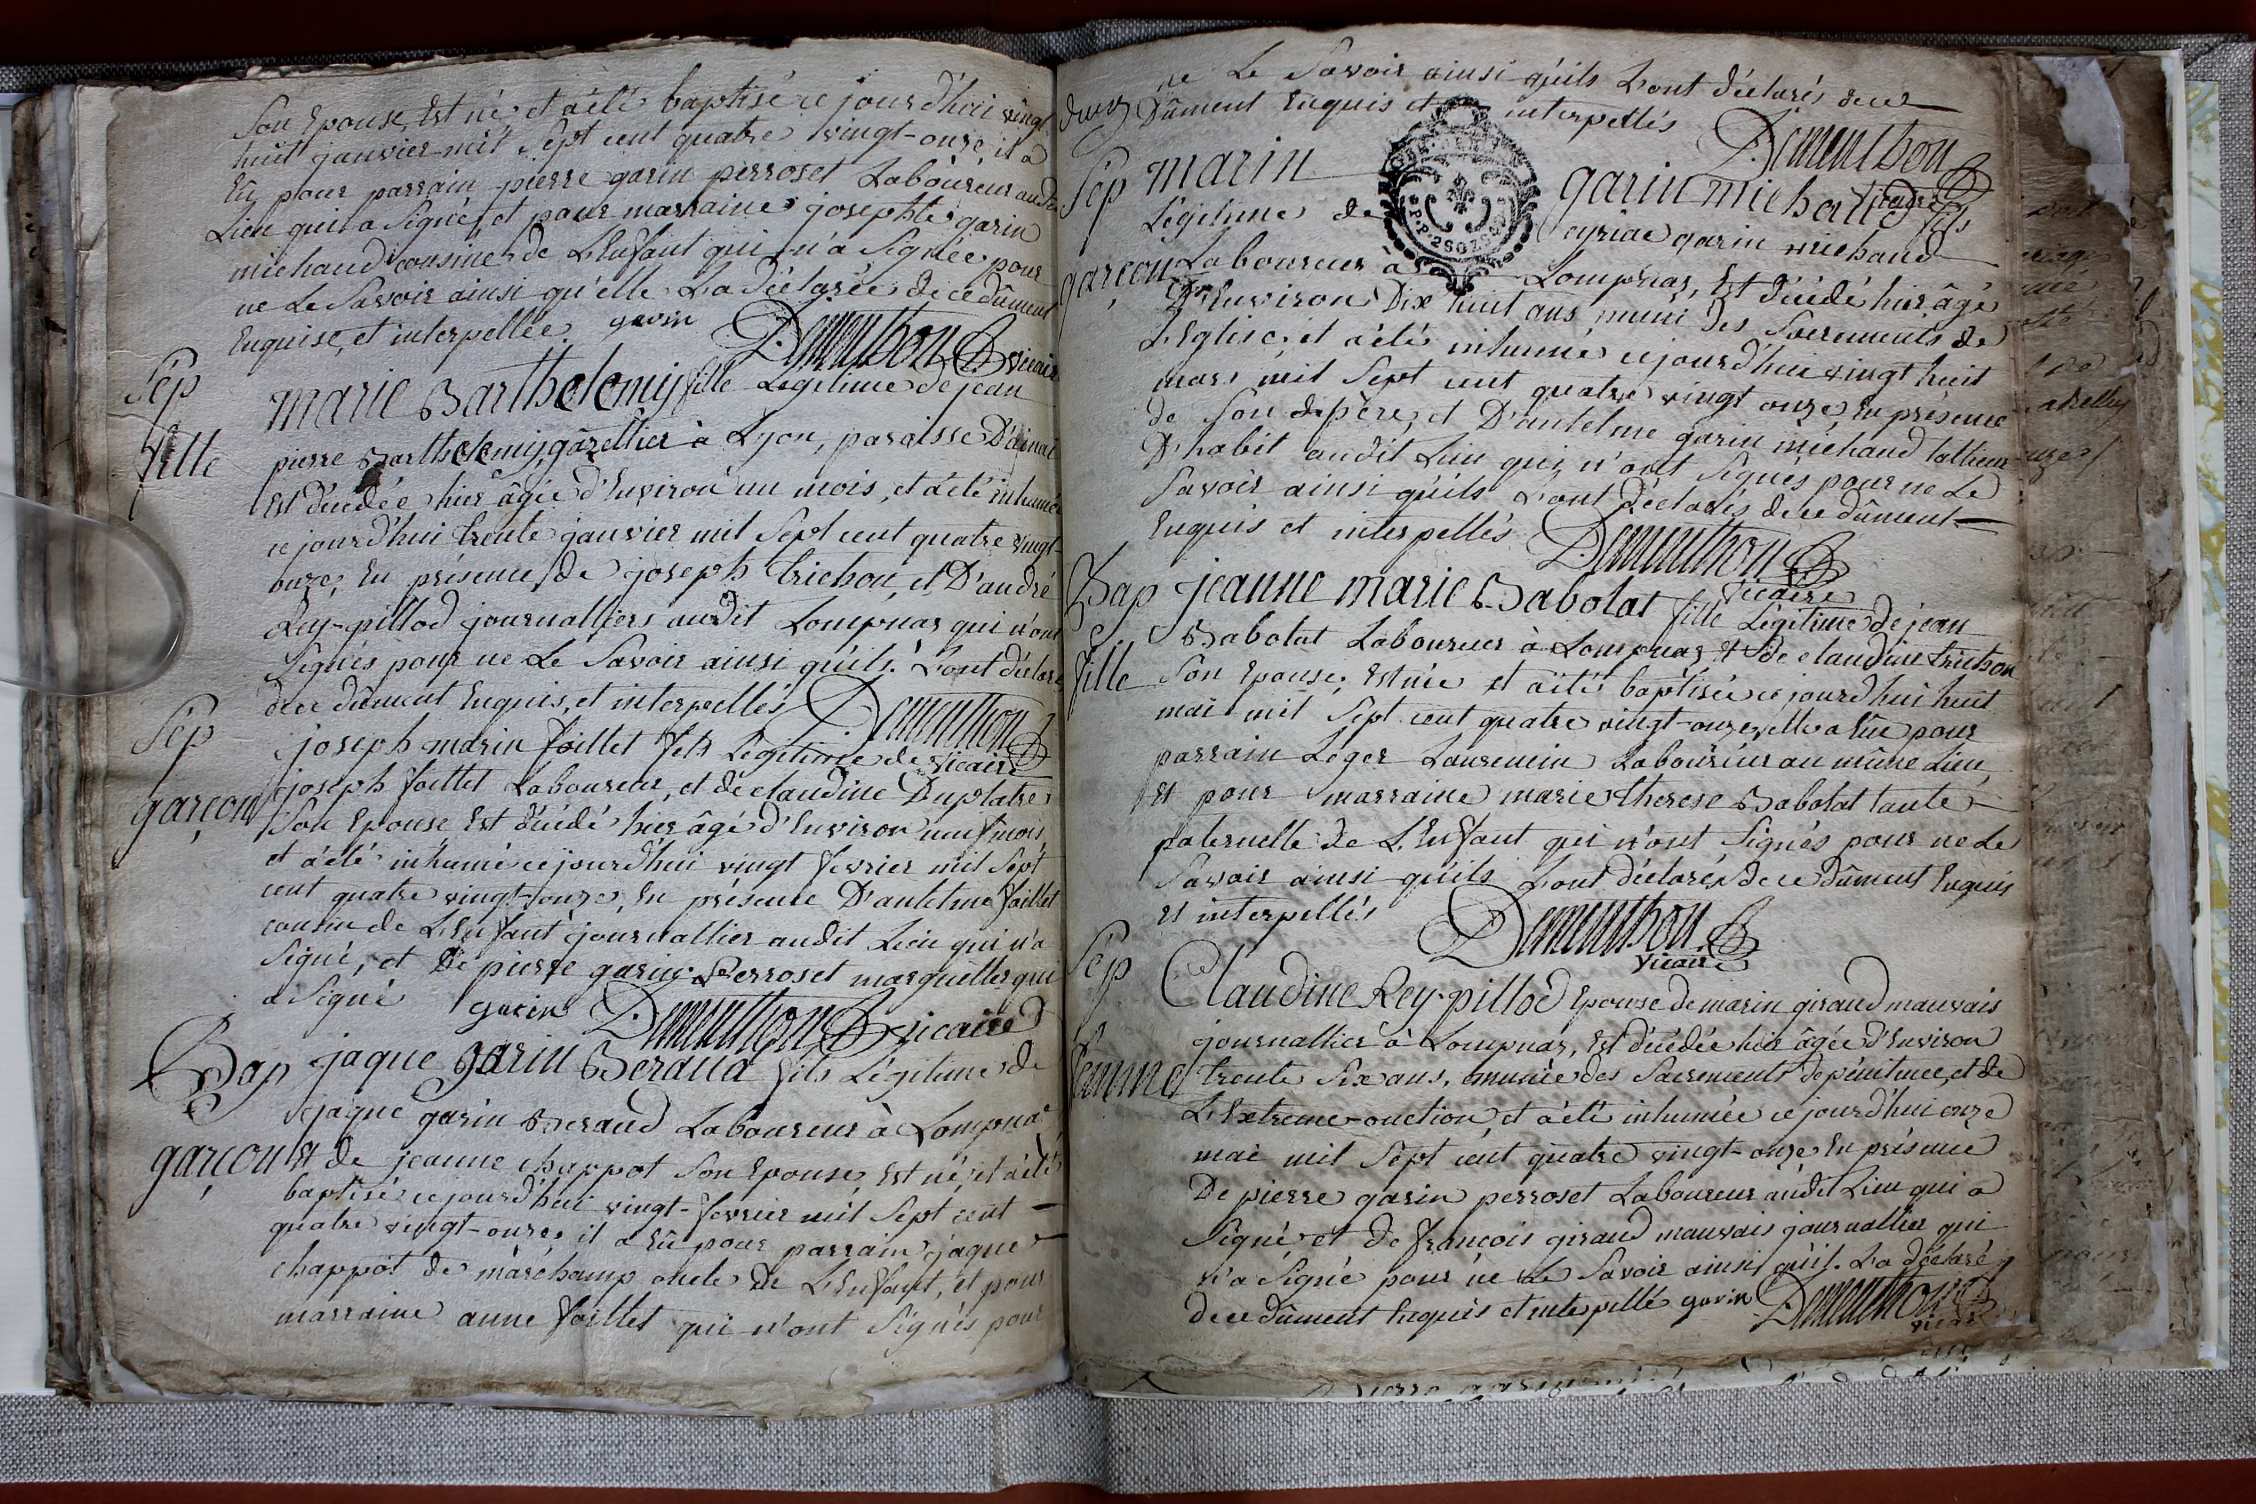 Son Epouse, Est né, et a été baptisé ce jourd'hui vingt
huit janvier mil Sept cent quatre vingt-onze, il a
Eû pour parrain pierre garin perroset Laboureur audit
Lieu qui a Signé, et pour marraine josephte garin
michaud cousine de L'Enfant qui n'a Signée pour
ne Le Savoir ainsi qu'elle La déclarée de ce dûment
Enquise, et interpellée. garin Dementhon vicaire
Sép
fille
marie Barthelemy fille Légitime de jean
pierre Barthelemy, gazettier à Lyon, paroisse D'ainai
Est décédée hier âgée d'Environ un mois, et a été inhumée
ce jourd'hui trente janvier mil Sept cent quatre vingt-
onze, En présence de joseph trichon, et D'andré
Rey-pillod journalliers audit Lompnas qui n'ont
Signés pour ne Le Savoir ainsi qu'ils L'ont déclaré
de ce dûment Enquis, et interpellés Dementhon
vicaire
Sép
garçon
joseph marin foillet fils Légitime de
joseph foillet Laboureur, et de claudine Duplatre
Son Epouse Est décédé hier âgé d'Environ neuf mois
et a été inhumé ce jourd'hui vingt fevrier mil Sept
cent quatre vingt-onze, En présence D'antelme foillet
cousin de L'Enfant journallier audit Lieu qui n'a
Signé, et De pierre garin Perroset marguillier qui
a Signé garin Dementhon vicaire
Bap
garçon
jaque garin Beraud fils Légitime de
jaque garin Beraud Laboureur à Lompnas
Et de jeanne chappot Son Epouse, Est né, et a été
baptisé ce jourd'hui vingt-fevrier mil Sept cent
quatre vingt-onze, il a Eû pour parrain jaque
chappot de marchamp oncle de L'Enfant, et pour
marraine anne foillet qui n'ont Signés pour
ne Le Savoir ainsi qu'ils L'ont déclarés de ce
Dûment Enquis et interpellés Dementhon
vicaire
Sép
garçon
marin garin michaud fils
Légitime de cyriac garin michaud
Laboureur à Lompnas, Est décédé hier âgé
D'Environ Dix huit ans muni des Sacrements de
L'Eglise, et a été inhumé ce jourd'hui vingt huit
mars mil Sept cent quatre vingt onze, En présence
de Son dit père, et D'antelme garin michaud tallieur
D'habit audit Lieu qui n'ont Signés pour ne Le
Savoir ainsi qu'ils L'ont déclarés de ce dûment
Enquis et interpellés Dementhon
vicaire
Bap
fille
jeanne marie Babolat fille Légitime de jean
Babolat Laboureur à Lompnas et de claudine trichon
Son Epouse, Est née et a été baptisée ce jourd'hui huit
mai mil Sept cent quatre vingt-onze, elle a Eûe pour
parrain Léger Laurencin Laboureur au même Lieu,
Et pour marraine marie therese Babolat tante
paternelle de L'Enfant qui n'ont Signés pour ne Le
Savoir ainsi qu'ils L'ont déclarés de ce dûment Enquis
Et interpellés Dementhon
vicaire
Sép
femme
Claudine Rey-pillod Epouse de marin giraud mauvais
journallier à Lompnas, Est décédée hier âgée d'Environ
trente Six ans, munie des Sacrements de pénitence, et de
L'Extreme-onction, et a été inhumée ce jourd'hui onze
mai mil Sept cent quatre vingt-onze En présence
De pierre garin perroset Laboureur audit Lieu qui a
Signé et de francois giraud mauvais journallier qui
n'a Signé pour ne Le Savoir ainsi qu'il L'a déclaré
de ce dûment Enquis et interpellé garin Dementhon
vicaire